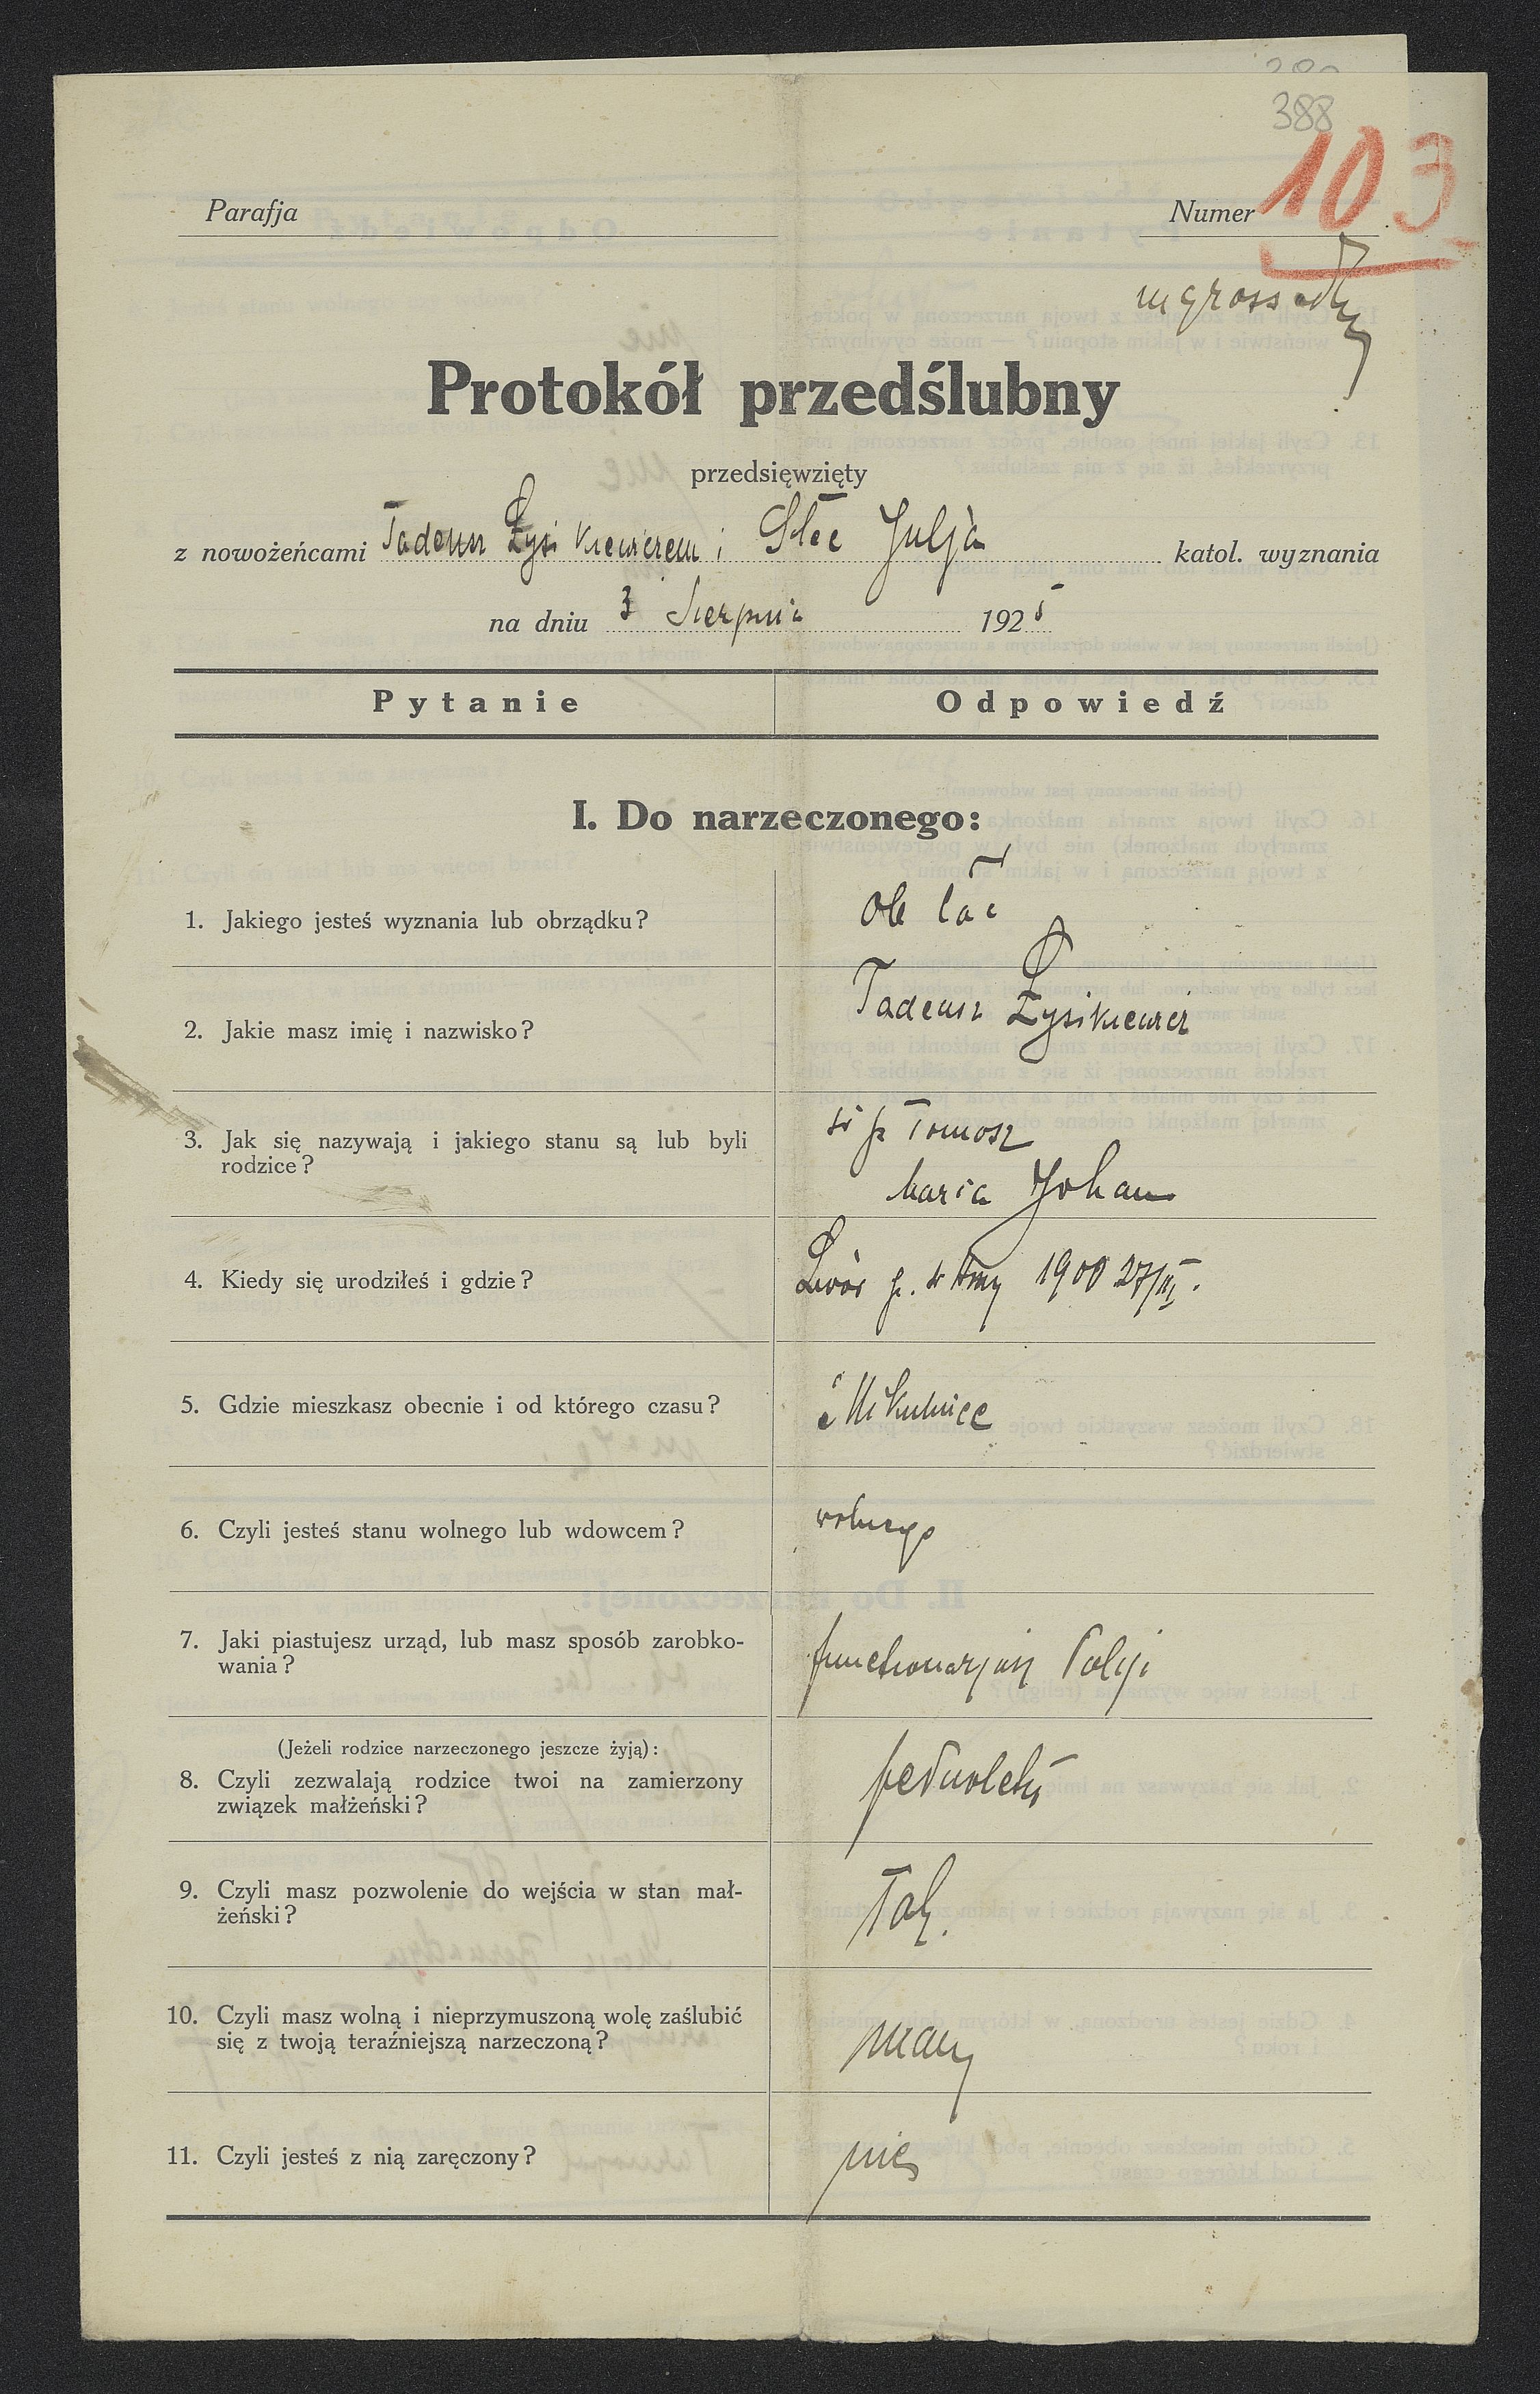 388
Parafja
Numer 103
ingross
Protokół przedślubny
przedsięwzięty
z nowożeńcami Tadeusz Łysikiewiczem i Stec Julja katol. wyznania
na dniu 3 Sierpnia 1925
Pytanie Odpowiedź
I. Do narzeczonego:
1. Jakiego jesteś wyznania lub obrządku? ob łać
2. Jakie masz imię i nazwisko? Tadeusz Łysikiewicz
3. Jak się nazywają i jakiego stanu są lub byli
rodzice? Tomasz
Maria Johan
4. Kiedy się urodziłeś i gdzie? Lwów p. 1900 27/
5. Gdzie mieszkasz obecnie i od którego czasu? Mikulnice
6. Czyli jesteś stanu wolnego lub wdowcem? wolnego
7. Jaki piastujesz urząd, lub masz sposób zarobko-
wania? functionarjusz Policji
(Jeżeli rodzice narzeczonego jeszcze żyją):
8. Czyli zezwalają rodzice twoi na zamierzony
związek małżeński? pełnoletni
9. Czyli masz pozwolenie do wejścia w stan mał-
żeński? Tak.
10. Czyli masz wolną i nieprzymuszoną wolę zaślubić
się z twoją teraźniejszą narzeczoną? mam
11. Czyli jesteś z nią zaręczony? nie